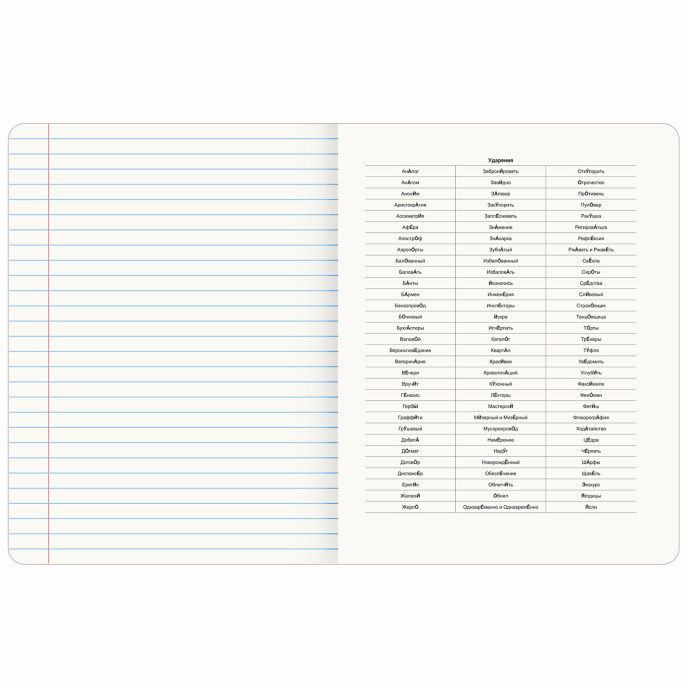 Ударения
АнАлог ЗабронИровать ОткУпорить
АнАтом ЗавИдно Отрочество
АнонИм ЗАговор ПрОтивень
АристокрАтия ЗакУпорить ПулОвер
АссиметрИя ЗаплЕсневеть РакУшка
АфЁра ЗнАмение РетировАться
АпострОф ЗнАхарка РефлЕксия
АэропОрты ЗубчАтый РжАветь и РжавЕть
БалОванный ИзбалОванный СвЁкла
БаловАть ИзбаловАть СирОты
БАнты Иконопись СрЕдства
БАрмен ИнженЕрия СлИвовый
БензопровОд ИнспЕкторы СтраховщИк
БОчковый Искра ТанцОвщица
БухгАлтеры ИсчЕрпать ТОрты
ВаловОй КаталОг ТрЕнеры
ВероисповЕдание КвартАл ТУфля
ВетеринАрия КрасИвее УвЕдомить
ВЕчеря КровоточАщий УглубИть
ВручИт КУхонный ФаксИмиле
ГЕнезис ЛЕкторы ФенОмен
ГербЫ МастерскИ ФетИш
ГраффИти МИзерный и МизЕрный ФлюорогрАфия
ГрУшевый МусоропровОд ХодАтайство
ДобелА НамЕрение ЦЕдра
ДОгмат НедУг ЧЕрпать
ДоговОр НоворождЁнный ШАрфы
ДиспансЕр ОбеспЕчение ЩавЕль
ЕретИк ОблегчИть Экскурс
ЖалюзИ Обнял Ягодицы
ЖерлО ОдноврЕменно и ОдновремЕнно Ясли